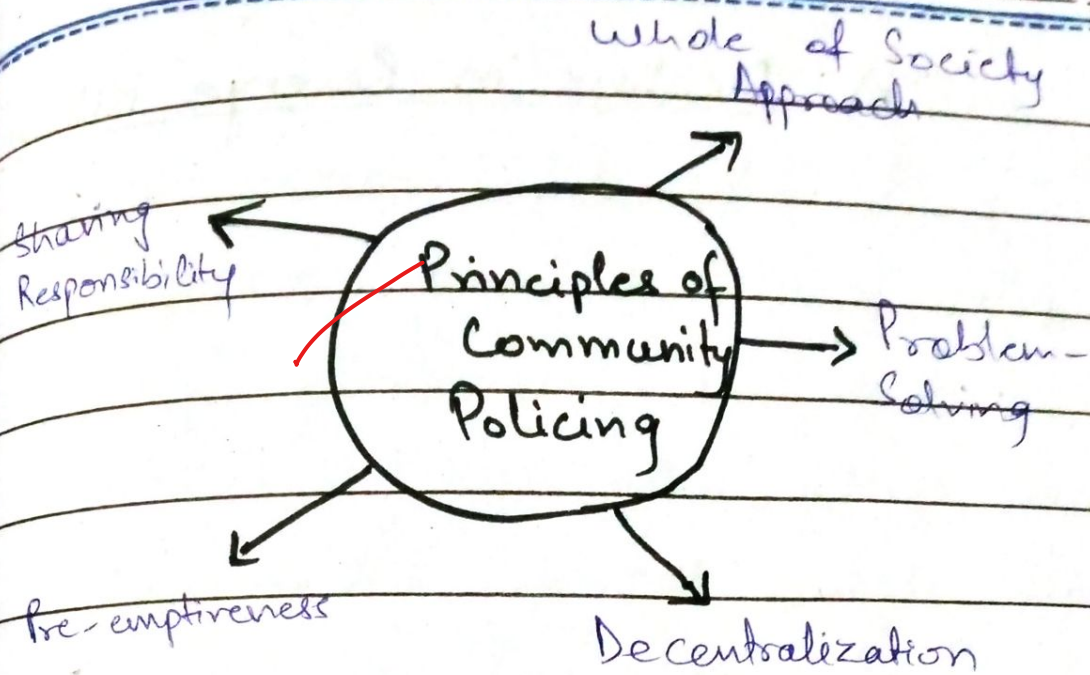 Whole of Society
Approach
Sharing
Responsibility
Principles of
Community
Policing
Problem-
Solving
Pre-emptiveness
Decentralization